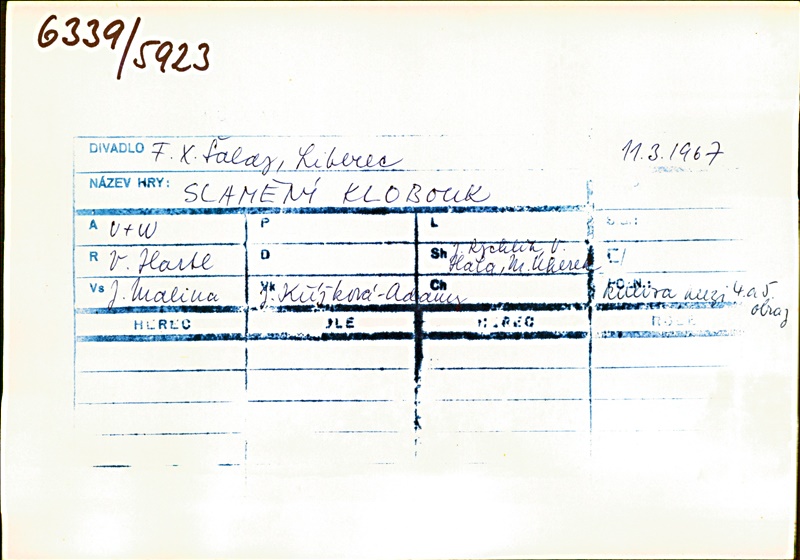 6339/5923
DIVADLO F. X. Šaldy, Liberec 11.3.1967
NÁZEV HRY: SLAMĚNÝ KLOBOUK
A V+W P L
R V. Hartl D Sh J. Rychlík, V.
Hála, M. Uherek
Vs J. Malina Vk J. Kůžková-Adamy Ch
4. a 5
obraz
HEREC HEREC ROLE